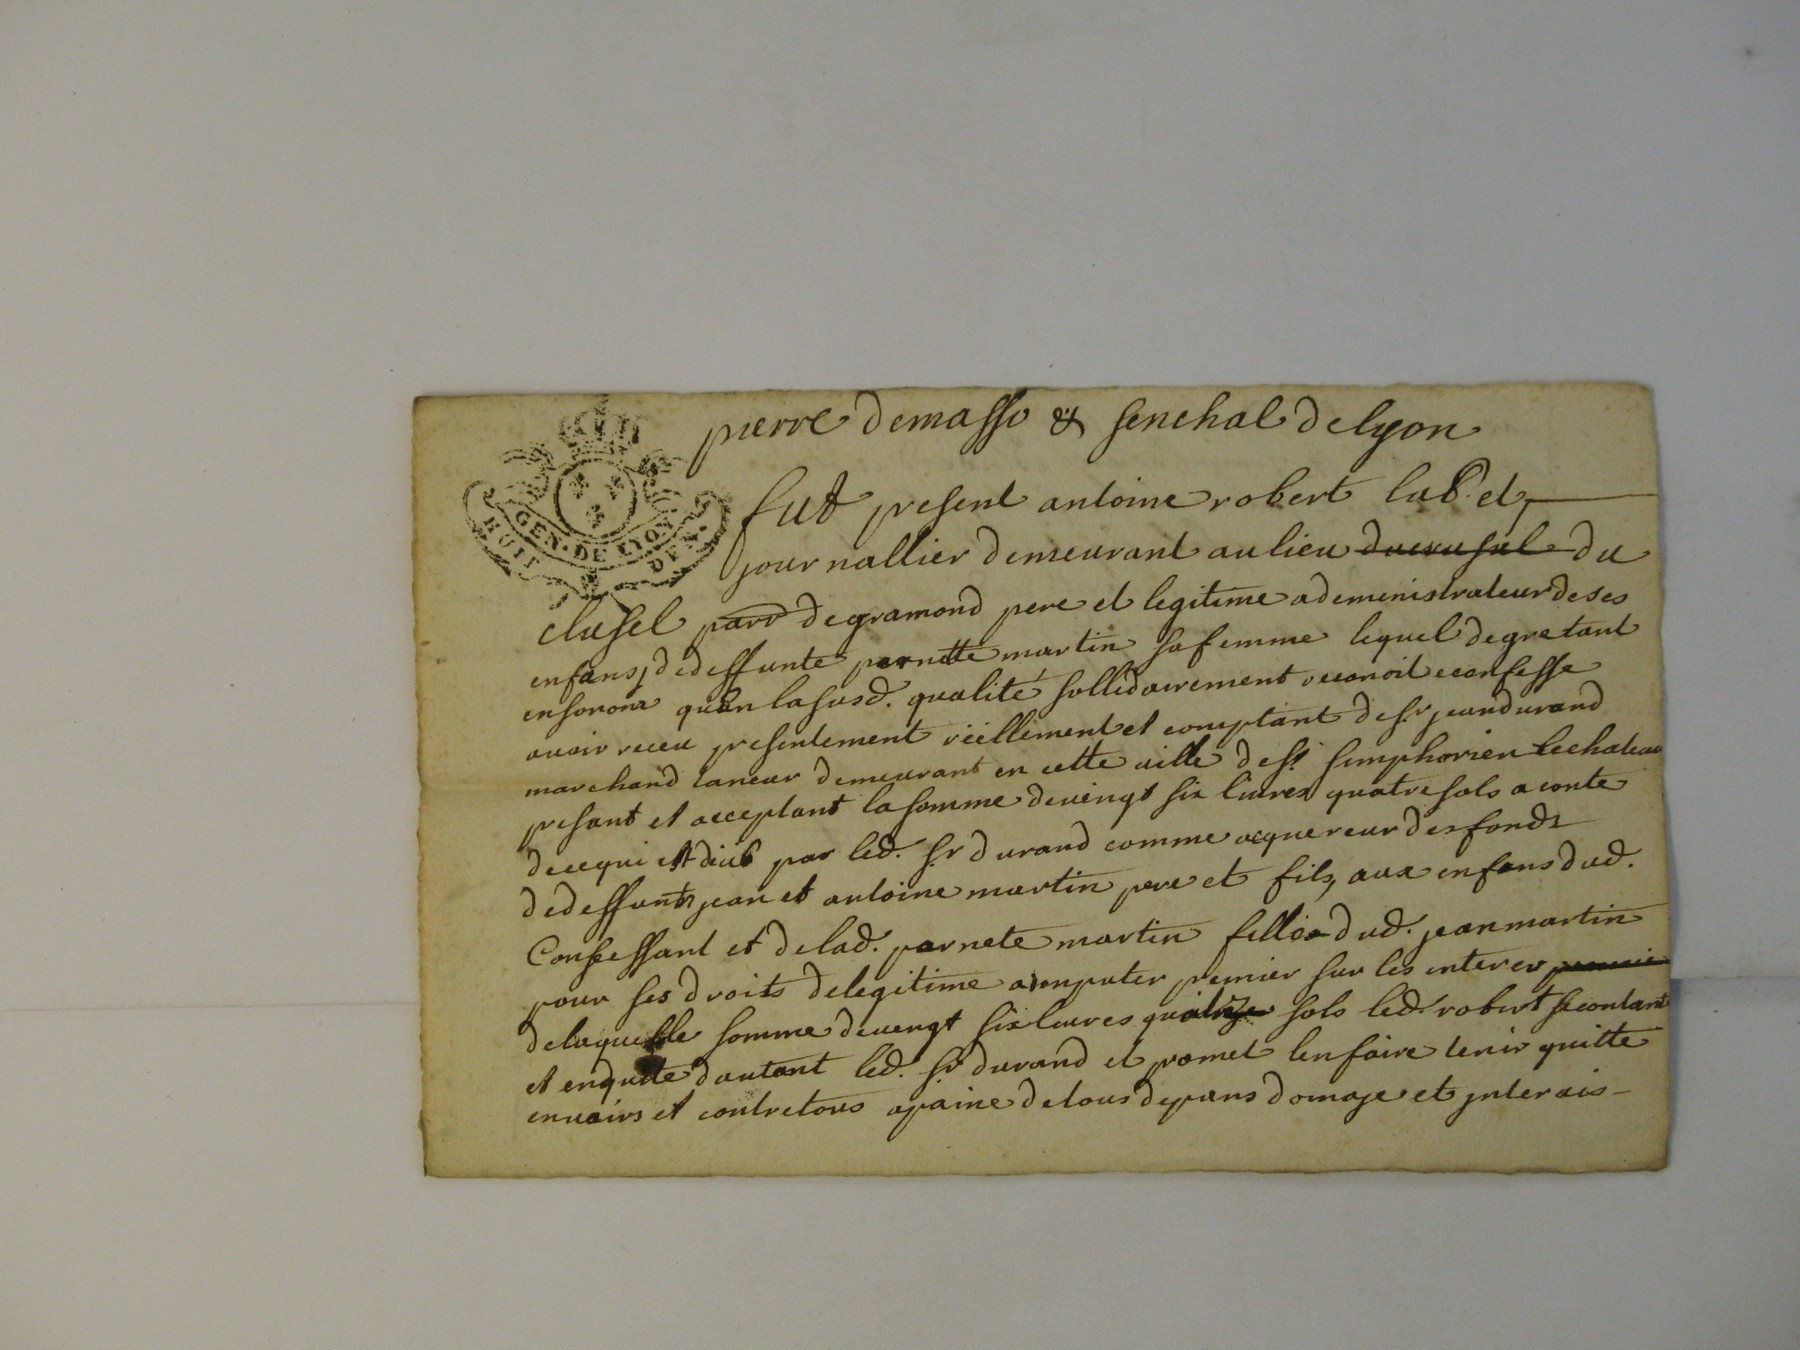 pierre demasso & senehal delyon
GEN · DE LYON
HUIT DEN.
fut present antoine robert lab. et
journallier demeurant aulieu du
clusel parr. degramond pere et legitimeademinis­trateur deses
enfans, dedeffunte parnette martin safemme lequel degre tant
ensonom quen lasusd. qualité sollidairement reconoit econfesse
avoir receu presentement réellement et comptant desr. jeandurand
marchand taneur demeurant en cette ville de st. simphorien lechateau
presant et acceptant lasomme devingt six livres quatre sols a conte
decequi est dub par led. sr durand comme acquereur desfonds
dedeffunts jean et antoine martin pere et fils, aux enfans dud.
Confessant et delad. parnete martin fille dud. jean martin
pour ses droits delegitime a inputer premier sur les interes
delaquelle somme devengt six livres quatre sols led. robert secontante
et enquite dautant led. sr durand et promet lenfaire tenir quitte
envairs et contretous apaine detous depans domaje et jnterais